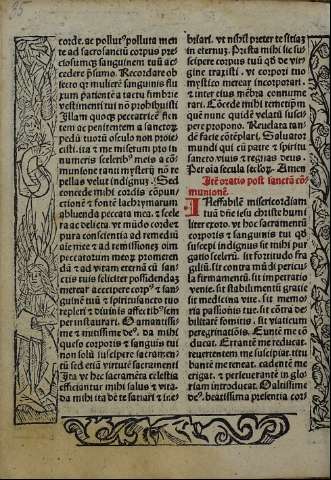 corde. ac pollut⁹ polluta men
te ad sacrosanctū corpus pre
ciosumqꝫ sanguinem tuū ac⸗
cedere p̄sumo. Recordare ob
secro qꝛ mulierē sanguinis flu
xum patientē a tactu fimbrie
vestimenti tui nō prohibuisti
Illam quoqꝫ peccatricē flen
tem ac penitentem a sanctoꝝ
pedū tuorū osculo non proie
cisti. ita ⁊ me miserum pro in
numeris sceleribꝰ meis a cō
munione tanti mysterij nō re
pellas velut indignuꝫ. Sed
concede mihi cordis cōpun
ctionē ⁊ fontē lachrymarum
abluenda peccata mea. ⁊ scele
ra ac delicta. vt mūdo corde ⁊
pura conscientia ad remediū
aīe mee ⁊ ad remissionēꝫ oīm
peccatorum meoꝝ promeren
da ⁊ ad vitam eternā cū san⸗
ctis tuis feliciter possidendaꝫ
merear accipere corpꝰ ⁊ san⸗
guinē tuū ⁊ spiritusancto tuo
repleri ⁊ diuinis affectibꝰ sem
per instaurari. O amantissi
me ⁊ mitissime deꝰ. da mihi
queso corporis ⁊ sanguīs tui
non solū suscipere sacramen
tū sed etiā virtutē sacramenti
Ita vt hec sacramēta celestia
efficiantur mihi salus ⁊ vita.
da mihi ita de te satiari ⁊ ine⸗
briari. vt nihil preter te sitiaꝫ
in eternuꝫ. Presta mihi sic sus
cipere corpus tuū qd̄ de vir⸗
gine traxisti. vt corpori tuo
mystico merear incorporari.
⁊ inter eius mēbra connume
rari. Cōcede mihi tēnetipm̄
quē nunc quidē velatū susci⸗
pere propono. Reuelata tan⸗
dē facie cōtēplari. Saluator
mundi qui cū patre ⁊ spiritu
sancto viuis ⁊ regnas deus.
Per oīa secula seculoꝝ. Amen
Itē oratio post sanctā cō
munionē.
Ineffabilē misericordiam
tuā dn̄e iesu christe humi
liter exoro. vt hoc sacramentū
corporis ⁊ sanguinis tui qd̄
suscepi indignus sit mihi pur
gatio scelerū. sit fortitudo fra
gilis. sit contra mūdi pericu⸗
la firmamentū. sit impetratio
venie. sit stabilimentū gratie
sit medicina vite. sit memo⸗
ria passionis tue. sit cōtra de⸗
bilitatem fomitis. sit viaticum
peregrinationis. Euntē me cō
ducat. Errantē me reducat.
reuertentem me suscipiat. titu
bantē me teneat. cadentē me
erigat. ⁊ perseuerantē in glo⸗
riam introducat. O altissime
deꝰ. beatissima presentia cor⸗